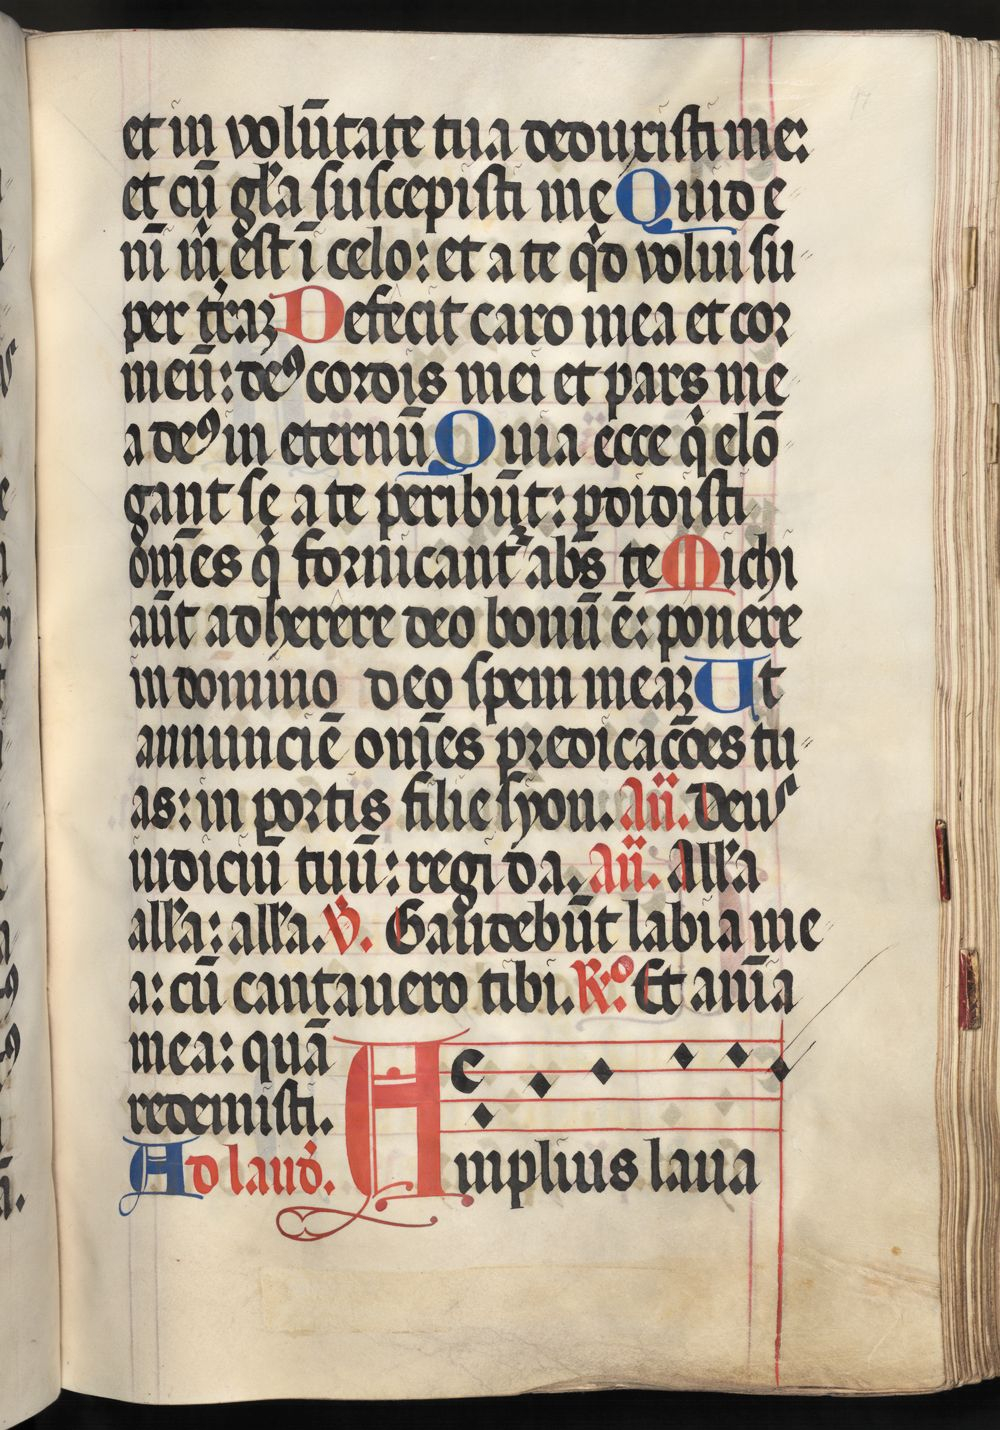 et in volūtate tua deduxisti me:
et cū gl̄a suscepisti me Quid e
ni m̄ est ī celo: et a te q̄d volui su
per t̄raꝫ Defecit caro mea et cor
meū: deꝰ cordis mei et pars me
a deꝰ in eternū Quia ecce qͥ elō
gant se a te peribūt: ꝑdidisti
om̄es qͥ fornicant᷑ abs te Michi
aūt adherere deo bonū ē: ponere
in domino deo spem meaꝫ Ut
annunciē om̄es predicac̄ões tu
as: in portis filie syon. Añ. Deus
iudiciū tuū: regi da. Añ. All'a
all'a: all'a. ℣. Gaudebūt labia me
a: cū cantavero tibi. R⁰. Et anīa
mea: quā
redemisti.
Ad laud̄. Amplius lava